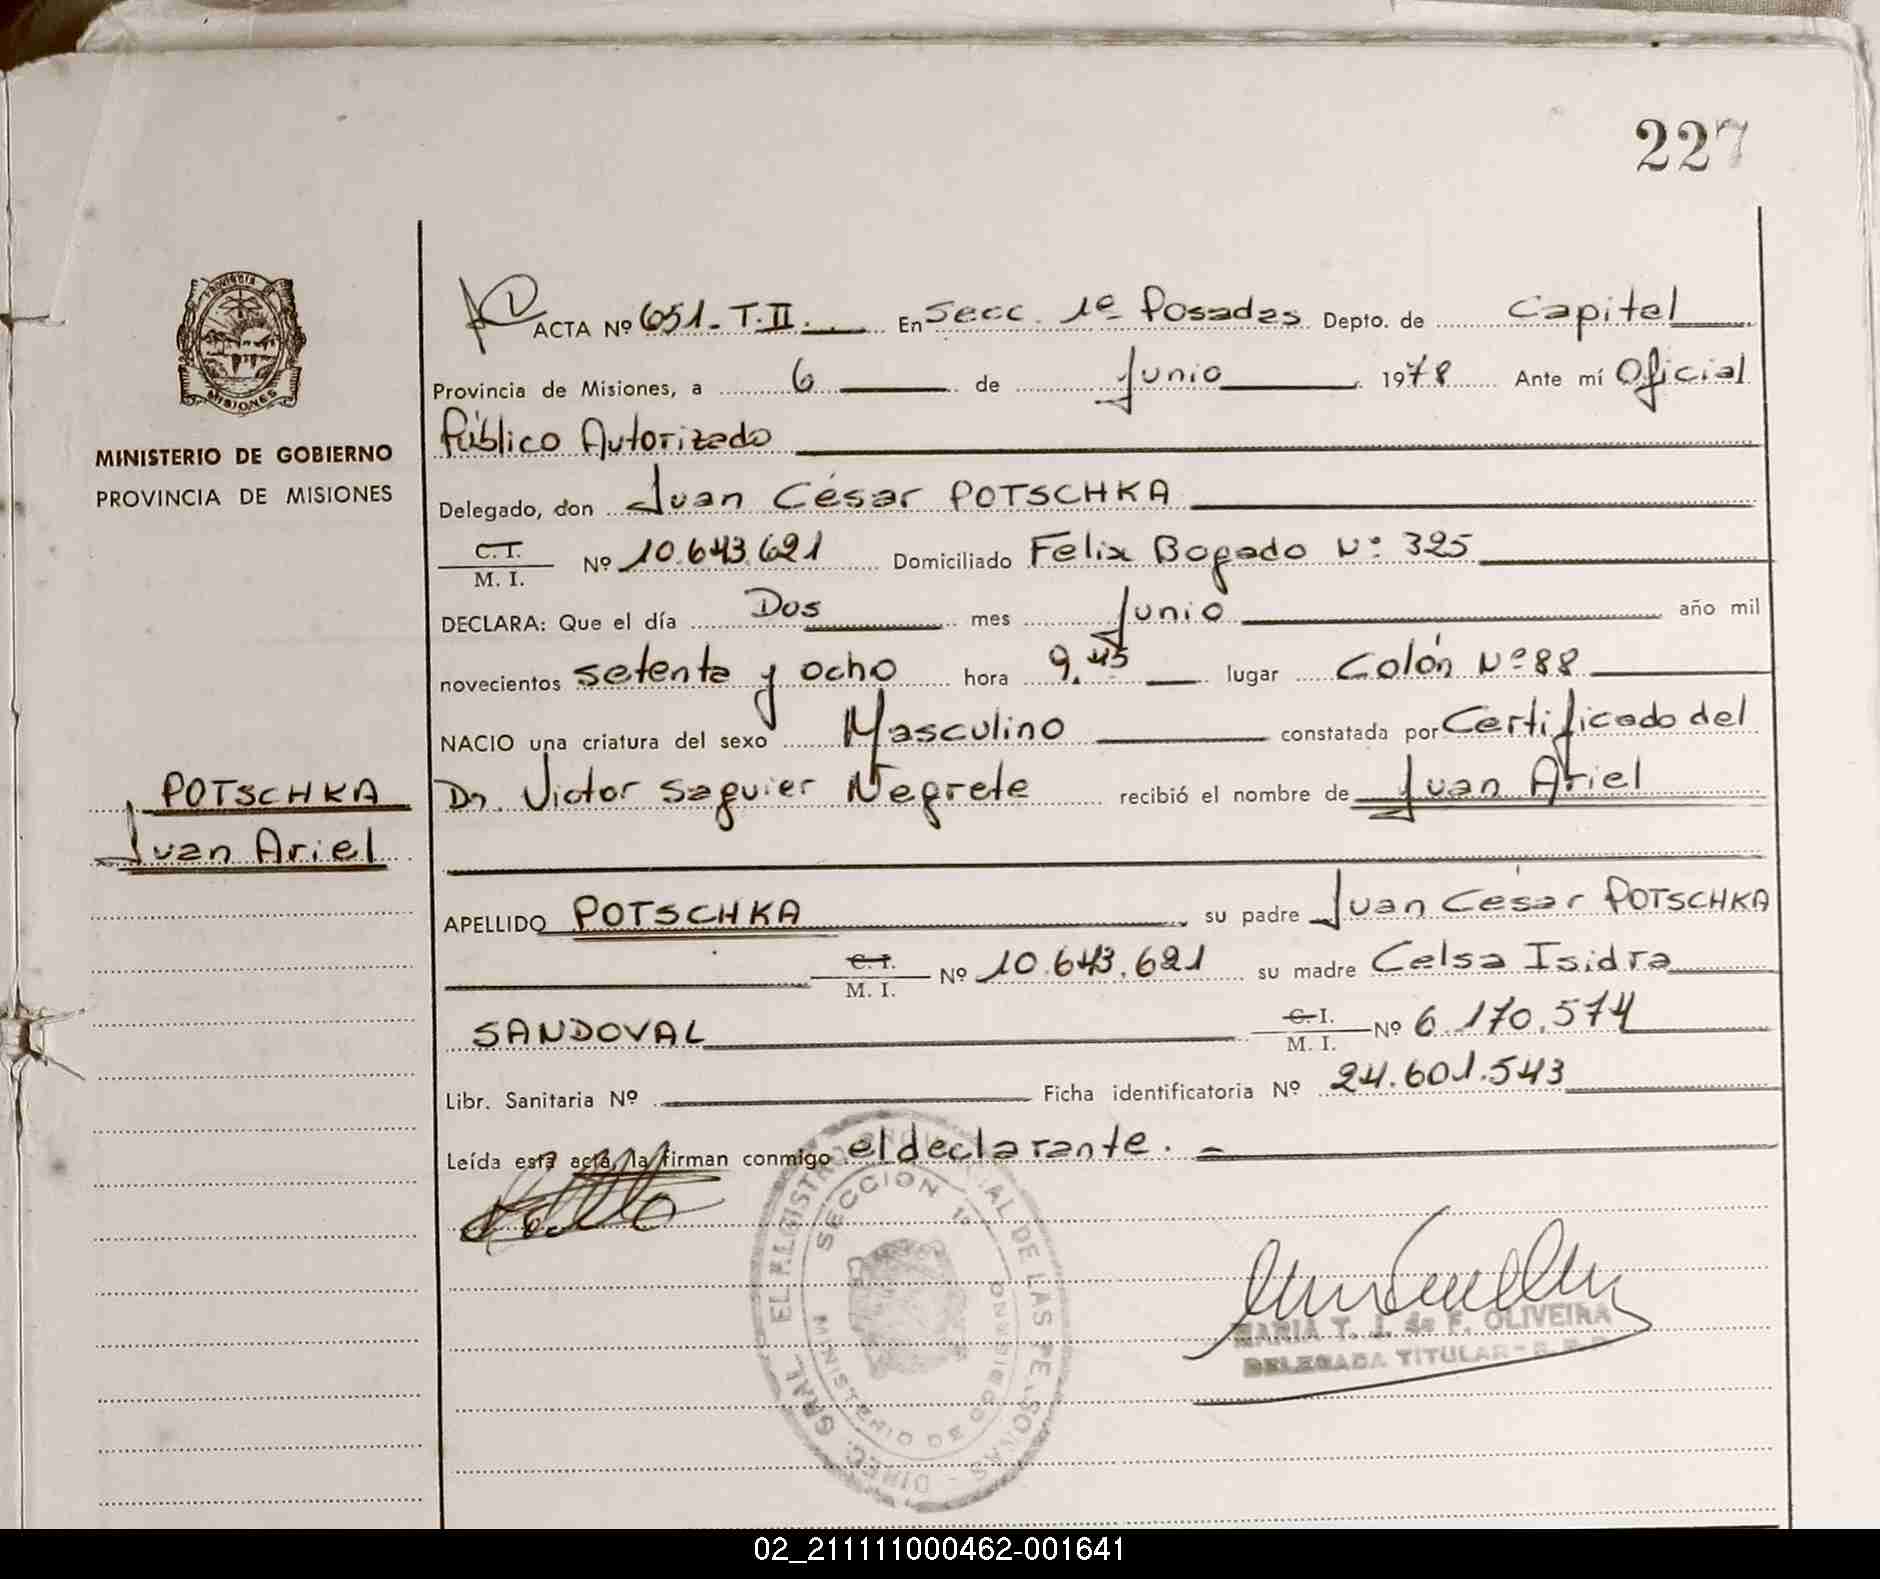 227
ACTA Nº 651. T. II. En Secc. 1ª Posadas Depto. de Capital
Provincia de Misiones, a 6 de Junio 1978 Ante mí Oficial
Público Autorizado
MINISTERIO DE GOBIERNO
PROVINCIA DE MISIONES
Delegado, don Juan César POTSCHKA
C. I.
M. I. Nº 10.643.621 Domiciliado Felix Bogado Nº 325
DECLARA: Que el día Dos mes Junio año mil
novecientos setenta y ocho hora 9,45 lugar Colón Nº 88
NACIO una criatura del sexo Masculino constatada por Certificado del
POTSCHKA
Juan Ariel
Dr. Victor Saguier Negrete recibió el nombre de Juan Ariel
APELLIDO POTSCHKA su padre Juan César POTSCHKA
C. I.
M. I. Nº 10.643.621 su madre Celsa Isidra
SANDOVAL C. I.
M. I. Nº 6.170.574
Libr. Sanitaria Nº Ficha identificatoria Nº 24.601.543
Leída esta acta, la firman conmigo el declarante.
SECCION 1ª
MARIA T. J. de F. OLIVEIRA
DELEGADA TITULAR
MISIONES
02_211111000462-001641